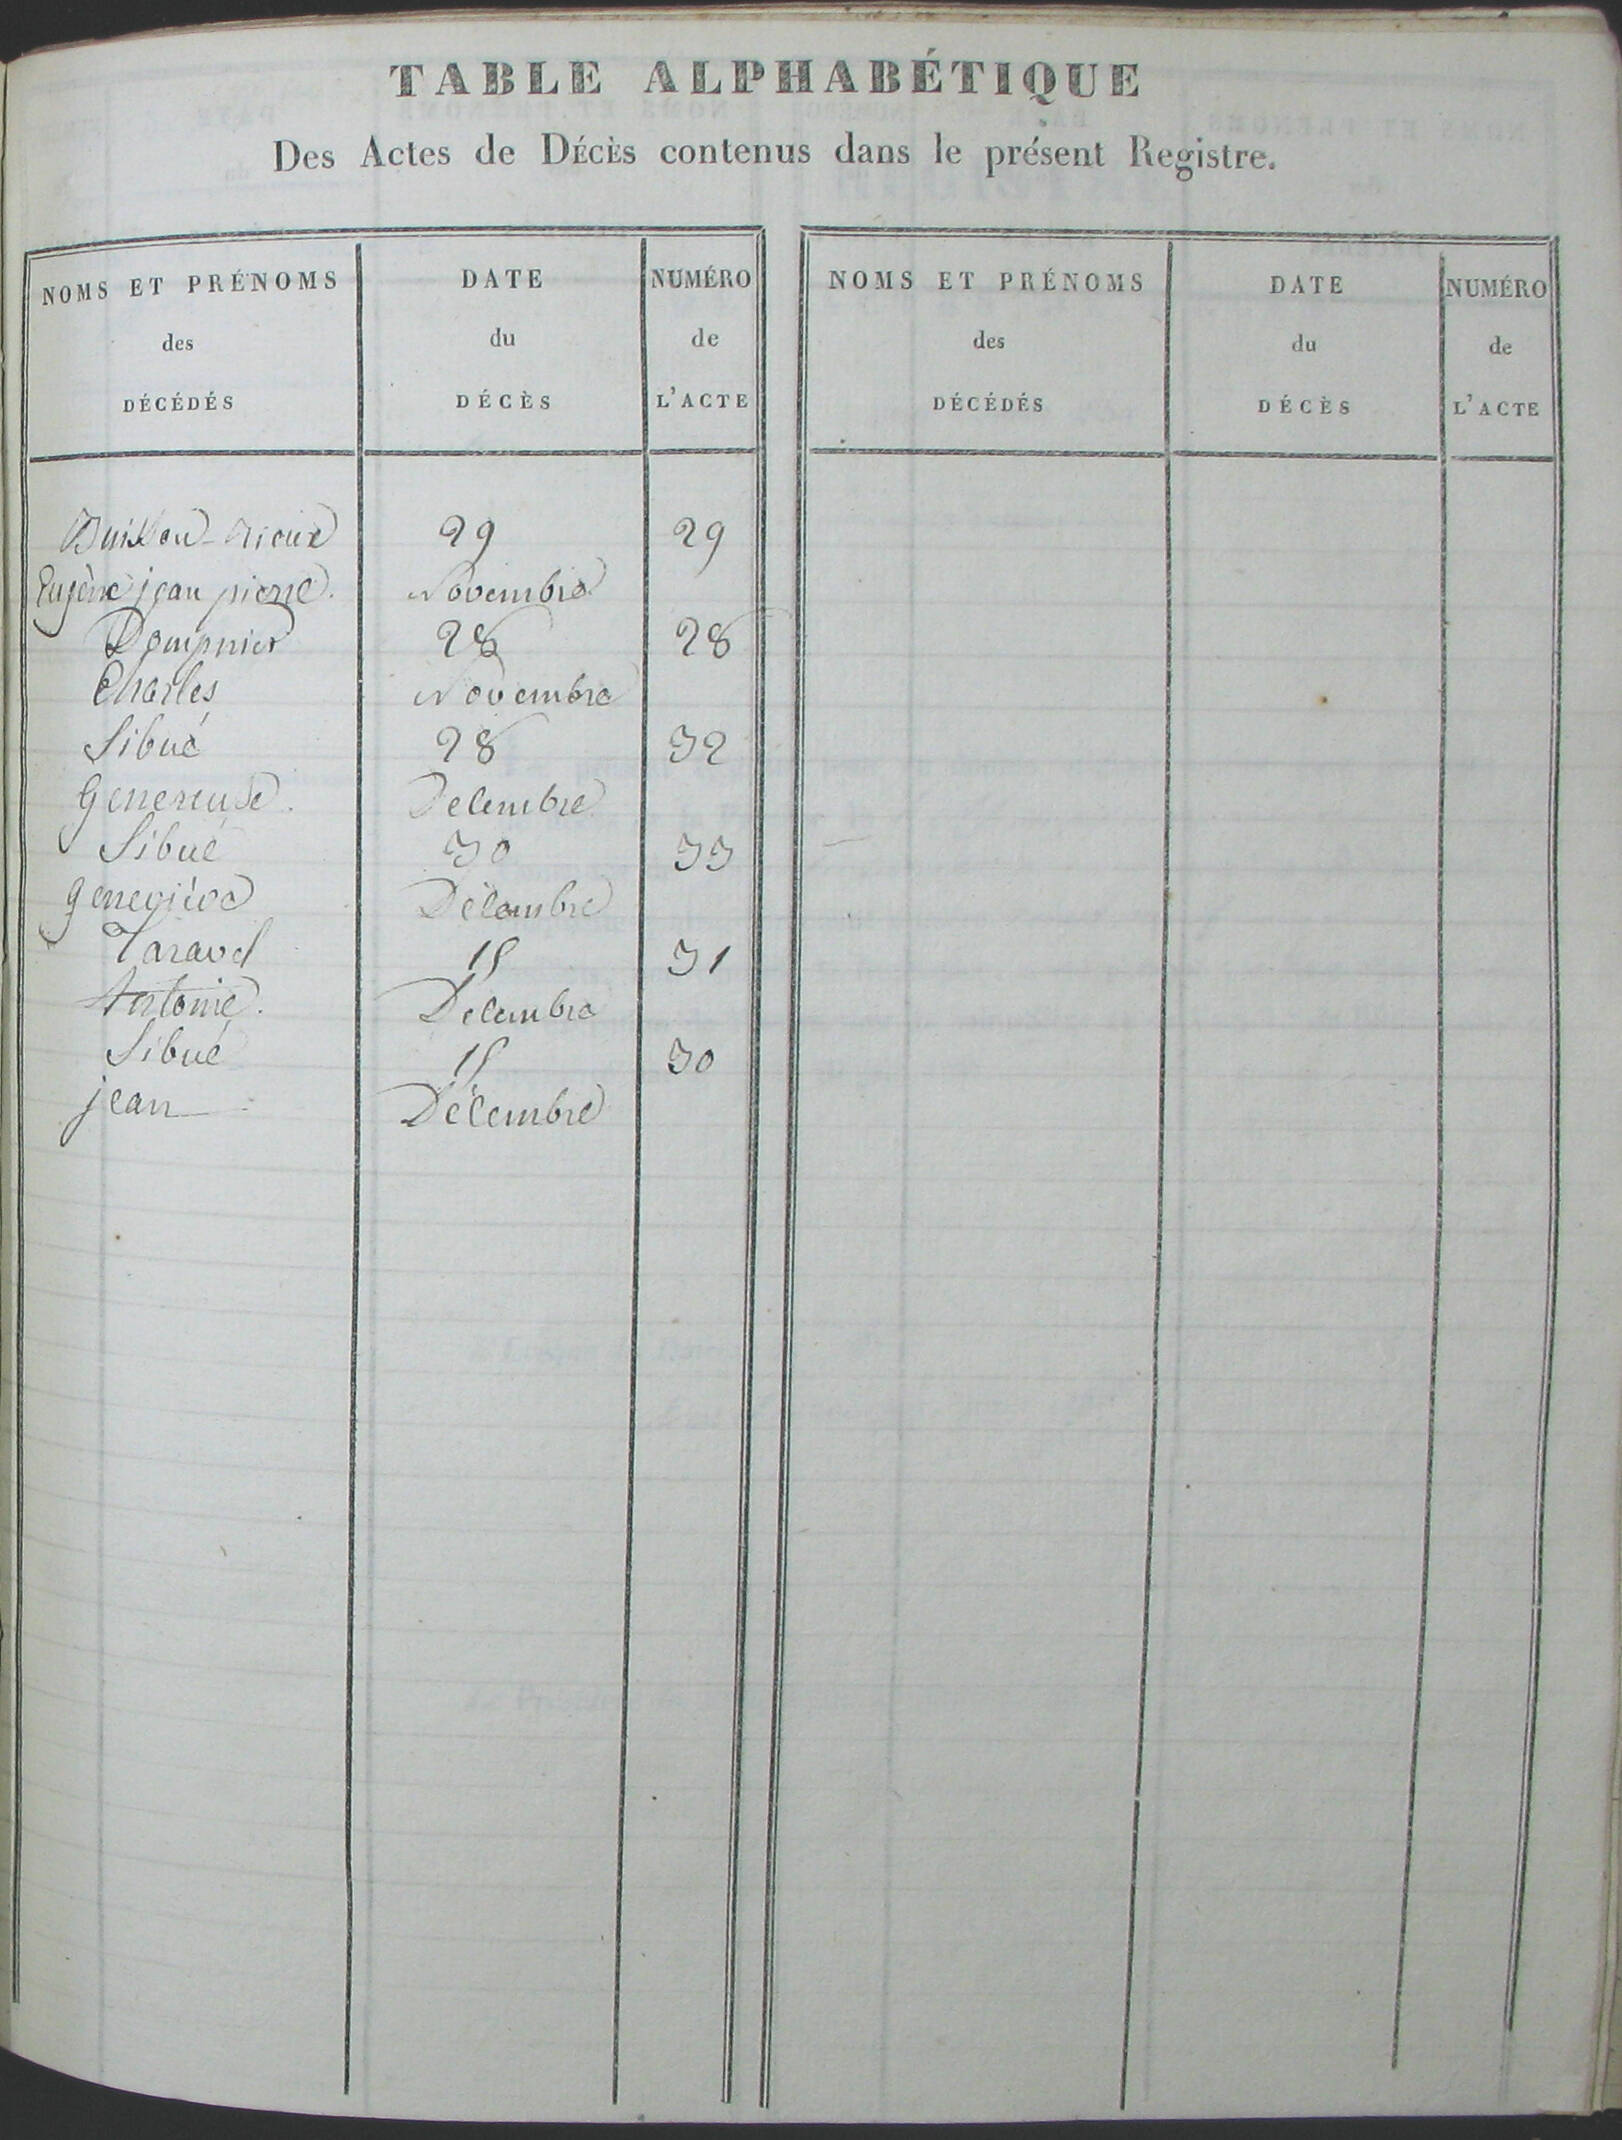 TABLE ALPHABÉTIQUE
Des Actes de DÉCÈS contenus dans le présent Registre.
NOMS ET PRÉNOMS DATE NUMÉRO
des du de
DÉCÉDÉS DÉCÈS L'ACTE
NOMS ET PRÉNOMS DATE NUMÉRO
des du de
DÉCÉDÉS DÉCÈS L'ACTE
29 29
Eugène jean pierre. Novembre
Dompnier 28 28
Charles Novembre
Sibué 28 32
Genereuse. Decembre
Sibué 30 33
Geneviève Décembre
Taravel 15 31
Antoine. Décembre
Sibué 15 30
jean Décembre